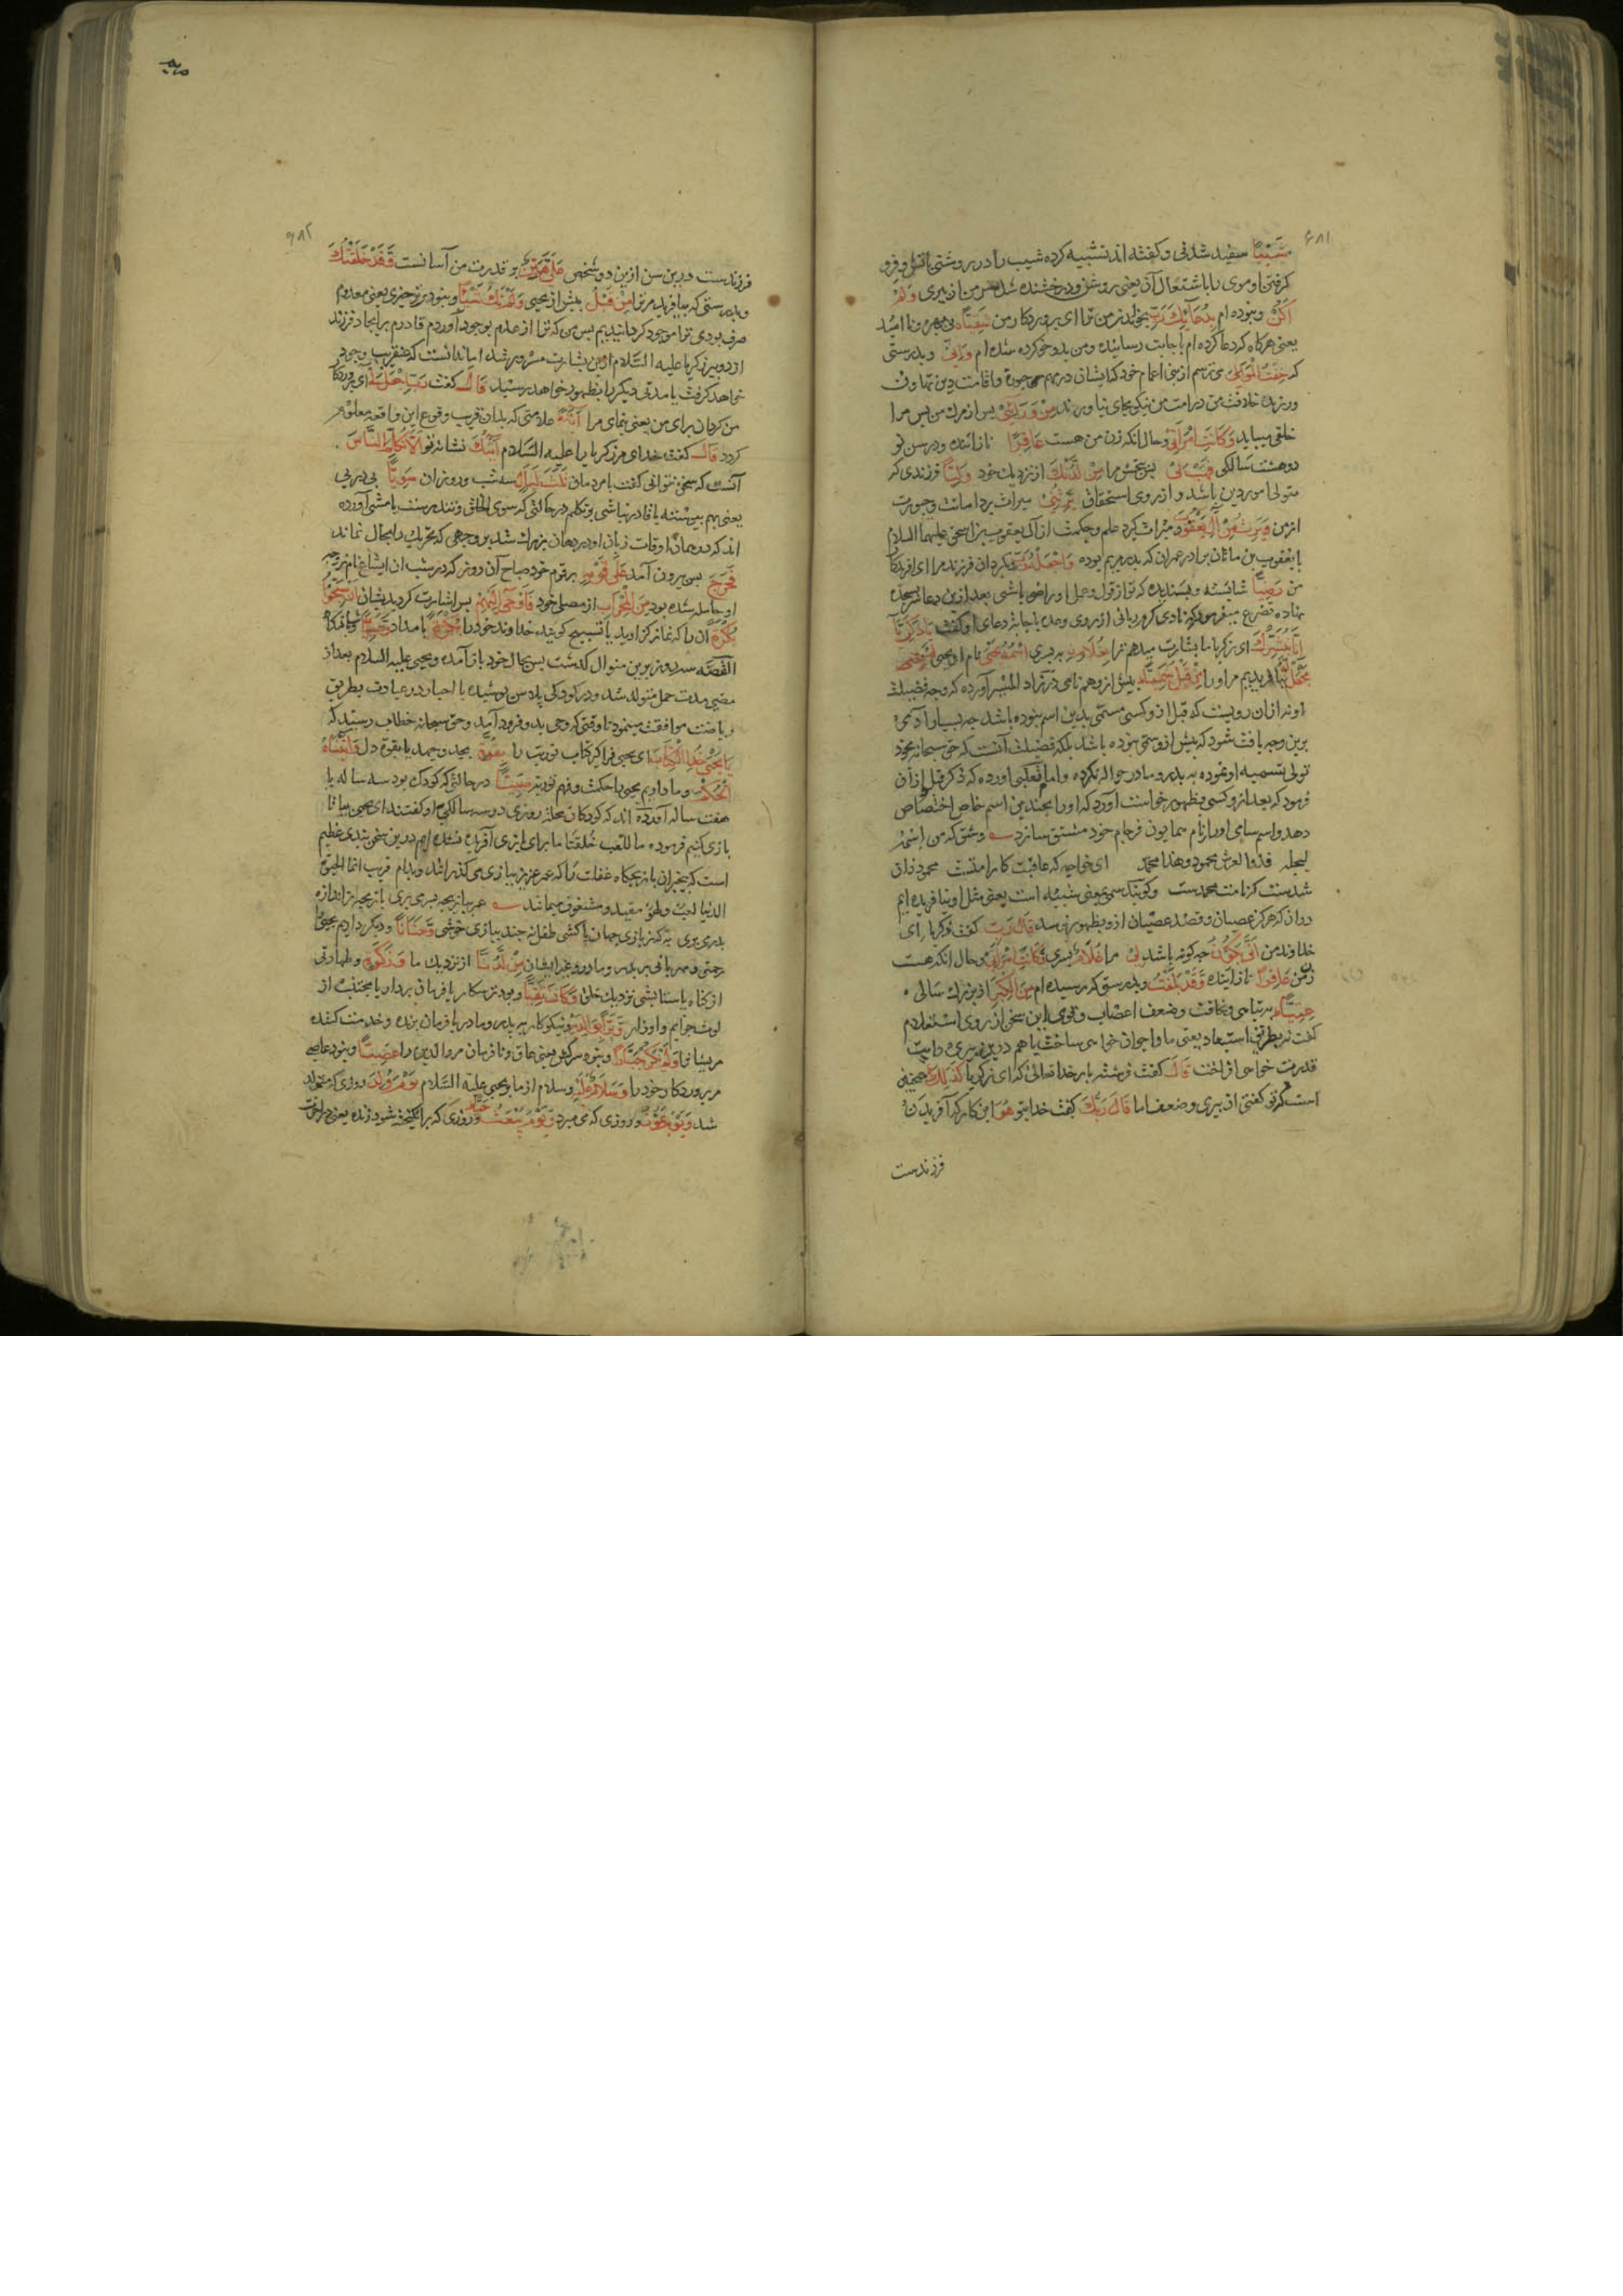 ۶۸۱
شَيْبًا سفید شدنی و گفته اند تشبیه کرده شیب را در روشنی باتش و فرو
کرفتن او موی را باشتعال آن یعنی روشن و درخشنده شد سر من از بیری وَلَمْ
اَكُنْ ونبوده ام بِدُعَائِكَ رَبِّ بخواندن من ترا ای پروردکار من شَقِيًّا بی بهره و نا امید
یعنی هرکاه که دعا کرده ام باجابت رسانیده ومن بدو خو کرده شده ام وَاِنِّي وبدرستی
که خِفْتُ الْمَوَالِيَ می ترسم از بنی اعمام خود که ایشان در مهم حبوره واقامت دین تهاون
ورزند خلافت من در امت من نیکو بجای نیاورند مِنْ وَرَائِي پس از مرک من پس مرا
خلفی میباید وَكَانَتِ امْرَاَتِي وحال انکه زن من هست عَاقِرًا نازاینده ودر سن نو
دوهشت سالکی فَهَبْ لِي پس ببخش مرا مِنْ لَدُنْكَ از نزدیک خود وَلِيًّا فرزندی که
متولی امور دین باشد و از روی استحقاق يَرِثُنِي میراث بردامانت وحبورت
از من وَيَرِثُ مِنْ آلِ يَعْقُوبَ ومیراث کیرد علم وحکمت از آل یعقوب بن اسحق علیهما السلام
یا یعقوب بن ماثان برادر عمران که پدر مریم بوده وَاجْعَلْهُ رَبِّ وبکردان فرزند مرا ای افریدکار
من رَضِيًّا شایسته وپسندیده که تو از قول وعمل او راضی باشی بعد ازین دعا سر سجده
نهاده تضرع میفرمود که نادی کرم ربانی از روی وعده باجابت دعای او کفت يَا زَكَرِيَّا
اِنَّا نُبَشِّرُكَ ای زکریا ما بشارت میدهم ترا بِغُلَامٍ به پسری اسْمُهُ يَحْيَى نام او یحیی
نَجْعَلْ لَهُ نیافریدیم مر او را مِنْ قَبْلُ سَمِيًّا پیش از وهم نامی در زاد المسیر آورده که وجه فضیلت
او نه ازان رویست که قبل از و کسی مسمی بدین اسم نبوده باشد چه بسیار آدمی
برین وجه یافت شود که پیش از وسمی نبوده باشد بلکه فضیلت آنست که حق سبحانه بخود
تولی تسمیه او نموده به پدر ومادر حواله نکرده واما ثعلبی اورده که ذکر قبل ازان
فرمود که بعد از و کسی بظهور خواست آورد که او را بچندین اسم خاص اختصاص
دهد واسم سامی او را از نام همایون فرجام خود مشتق سازد وشق له من اسمه
لیجله فذوا العرش محمود وهذا محمد ای خواجه که عاقبت کار امتت محمود زان
شدست که نامت محمدست وکویند سمی بمعنی شبیه است یعنی مثل او نیافریده ایم
دران که هرکز عصیان وقصد عصیان ازو بظهور نرسد قَالَ رَبِّ کفت زکریا ای
خداوند من اَنَّى يَكُونُ چه کونه باشد لِي مرا غُلَامٌ پسری وَكَانَتِ امْرَاَتِي وحال انکه هست
زن من عَاقِرًا نازاینده وَقَدْ بَلَغْتُ وبدرستی که رسیده ام مِنَ الْكِبَرِ از بزرک سالی
عِتِيًّا به تباهی ونحافت وضعف اعصاب وقوی این سخن از روی استعلام
کفت نه بطریق استبعاد یعنی ما را جوان خواهی ساخت یا هم درین پیری رایت
قدرت خواهی افراخت قَالَ کفت فرشته بامر خدا تعالی که ای زکریا كَذَلِكَ همچنین
است که تو کفتی از پیری وضعف اما قَالَ رَبُّكَ کفت خدای تو هُوَ این کار که آفریدن
فرزندست
۶۸۲
فرزندست درین سن ازین دو شخص عَلَيَّ هَيِّنٌ بر قدرت من آسانست وَقَدْ خَلَقْتُكَ
وبدرستی که بیافریدم ترا مِنْ قَبْلُ پیش از یحیی وَلَمْ تَكُ شَيْئًا ونبودی تو چیزی یعنی معدوم
صرف بودی ترا موجود کردانیدیم پس من که ترا از عدم بوجود آوردم قادرم بر ایجاد فرزند
از دو پیر زکریا علیه السلام ازین بشارت مسرور شد اما ندانست که عنقریب وجود
خواهد کرفت یا مدتی دیکر را بظهور خواهد رسید قَالَ کفت رَبِّ اجْعَلْ لِي ای پروردکار
من کردان برای من یعنی بنمای مرا آيَةً علامتی که بدان قریب وقوع این واقعه معلوم
کردد قَالَ کفت خدای مر زکریا را علیه السلام آيَتُكَ نشانه تو اَلَّا تُكَلِّمَ النَّاسَ
آنست که سخن نتوانی کفت بامردمان ثَلَاثَ لَيَالٍ سه شب وروز ان سَوِيًّا پی در پی
یعنی بهم پیوسته یا قادر نباشی بر تکلم در حالتی که سوی الخلق وتندرستف باشی آورده
اند که در همان اوقات زبان او در دهان بزرک شد بروجهی که تحریک را مجال نماند
فَخَرَجَ پس بیرون آمد عَلَى قَوْمِهِ بر قوم خود صباح آن روز که در شب ان ایشاع نام زوجه
او حامله شده بود مِنَ الْمِحْرَابِ از مصلی خود فَاَوْحَى اِلَيْهِمْ پس اشارت کرد بدیشان اَنْ سَبِّحُوا
آن را که نماز کزارید یا تسبیح کویید خداوند خود را بُكْرَةً بامداد وَعَشِيًّا وشبانکاه
القصه سه روز برین منوال کذشت پس بحال خود باز آمده ویحیی علیه السلام بعد از
مضی مدت حمل متولد شد ودر کودکی پلاس پوشیده با احبار در عبادت بطریق
ریاضت موافقت مینمود تا وقتی که وحی بدو فرود آمد وحق سبحانه خطاب رسید که
يَا يَحْيَى خُذِ الْكِتَابَ ای یحیی فراکیر کتاب توریت را بِقُوَّةٍ بجد وجهد یا بقوة دل وَآتَيْنَاهُ
الْحُكْمَ وما دادیم یحیی را حکمت وفهم توریة صَبِيًّا در حالتی که کودک بود سه ساله یا
هفت ساله آورده اند که کودکان محله روزی در سه سالکی او کفتند ای یحیی بیا تا
بازی کنیم فرموده ما للعب خلقنا ما برای بازی آفریده نشده ایم درین سخن پندی عظیم
است که بیخبران بازیچکاه غفلت را که عمر عزیز ببازی می کذرانند وبدام فریب انما الحیوة
الدنیا لعب ولهو مقید ومشغوف میمانند عمر ببازیچه بسر می بری بازیچه از اندازه
بدر می بری به که ز بازی جهان پا کشی طفل نه چند ببازی خوشی وَحَنَانًا ودیکر دادیم یحیی را
رحمتی ومهربانی بر پدر ومادر وغیر ایشان مِنْ لَدُنَّا از نزدیک ما وَزَكَاةً وطهارتی
از کناه یا ستایشی نزدیک خلق وَكَانَ تَقِيًّا وبود ترسکار یا فرمان بردار یا مجتنب از
لوث جرایم واوزار وَبَرًّا بِوَالِدَيْهِ ونیکوکار به پدر ومادر یا فرمان برنده وخدمت کننده
مریشان وَلَمْ يَكُنْ جَبَّارًا ونبود سرکش یعنی عاق ونافرمان مر والدین را عَصِيًّا ونبود عاصی
مر پروردکار خود را وَسَلَامٌ عَلَيْهِ وسلام از ما بر یحیی علیه السلام يَوْمَ وُلِدَ روزی که متولد
شد وَيَوْمَ يَمُوتُ وروزی که می میرد وَيَوْمَ يُبْعَثُ حَيًّا وروزی که برانکیخته شود زنده یعنی در اخرت